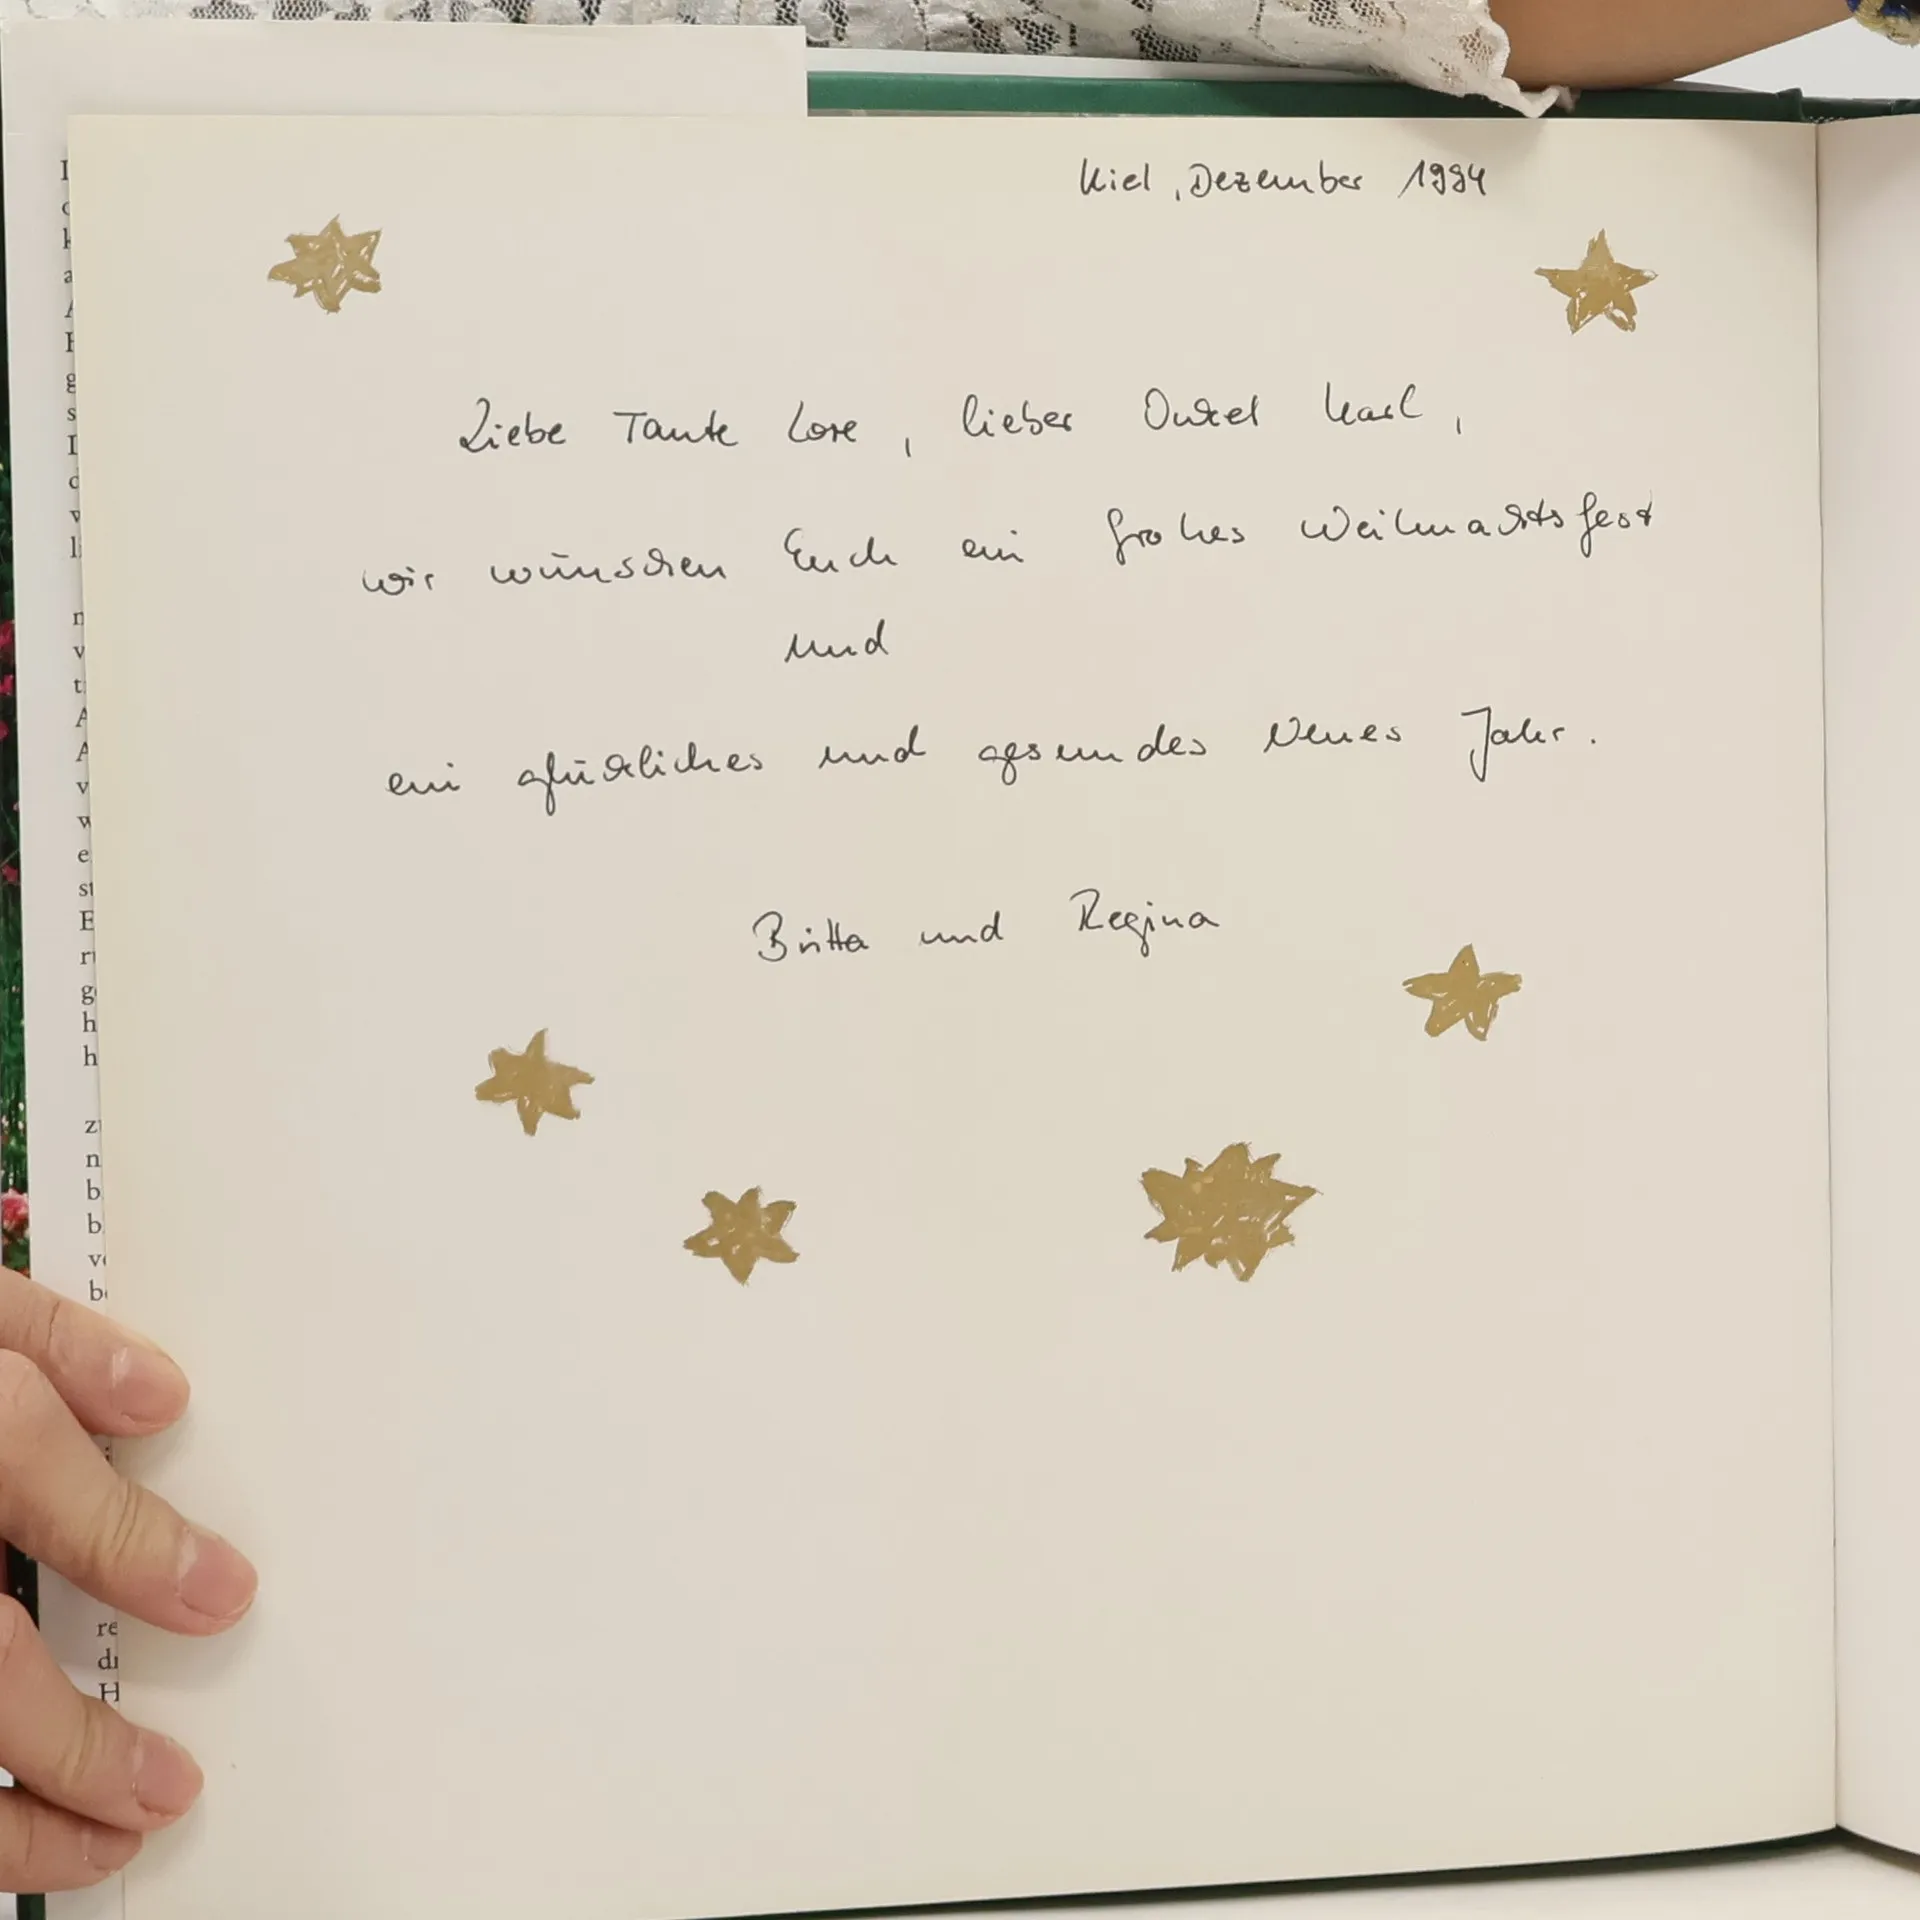 Kiel, Dezember 1994
Liebe Tante Lore, lieber Onkel Karl,
wir wünschen Euch ein frohes Weihnachtsfest
und
ein glückliches und gesundes Neues Jahr.
Britta und Regina